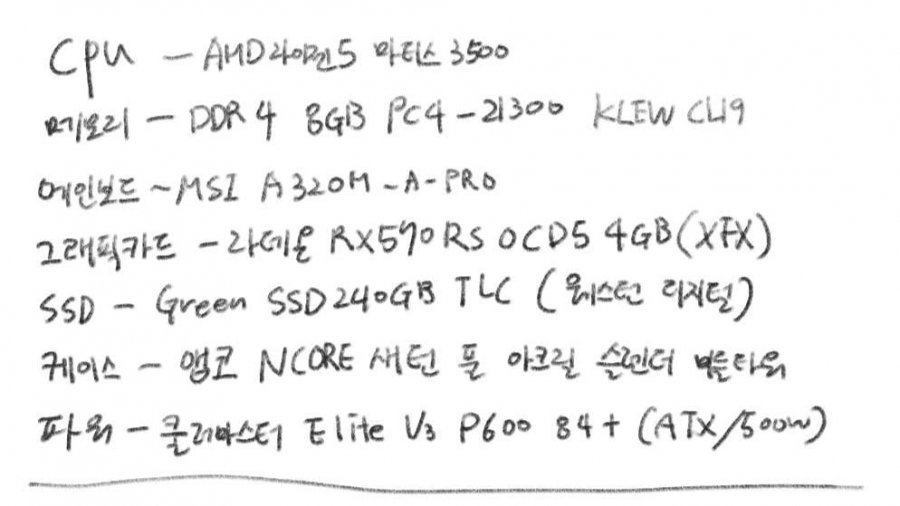 CPU - AMD라이젠5 마티스 3500
메모리 - DDR4 8GB PC4-21300 KLEW CL19
메인보드 ~ MSI A320M-A-PRO
그래픽카드 - 라데온 RX570 RS OC D5 4GB (XFX)
SSD - Green SSD 240GB TLC (웨스턴 디지털)
케이스 - 앱코 NCORE 새턴 풀 아크릴 슬렌더 미들타워
파워 - 쿨러마스터 Elite V3 P600 84+ (ATX/500W)